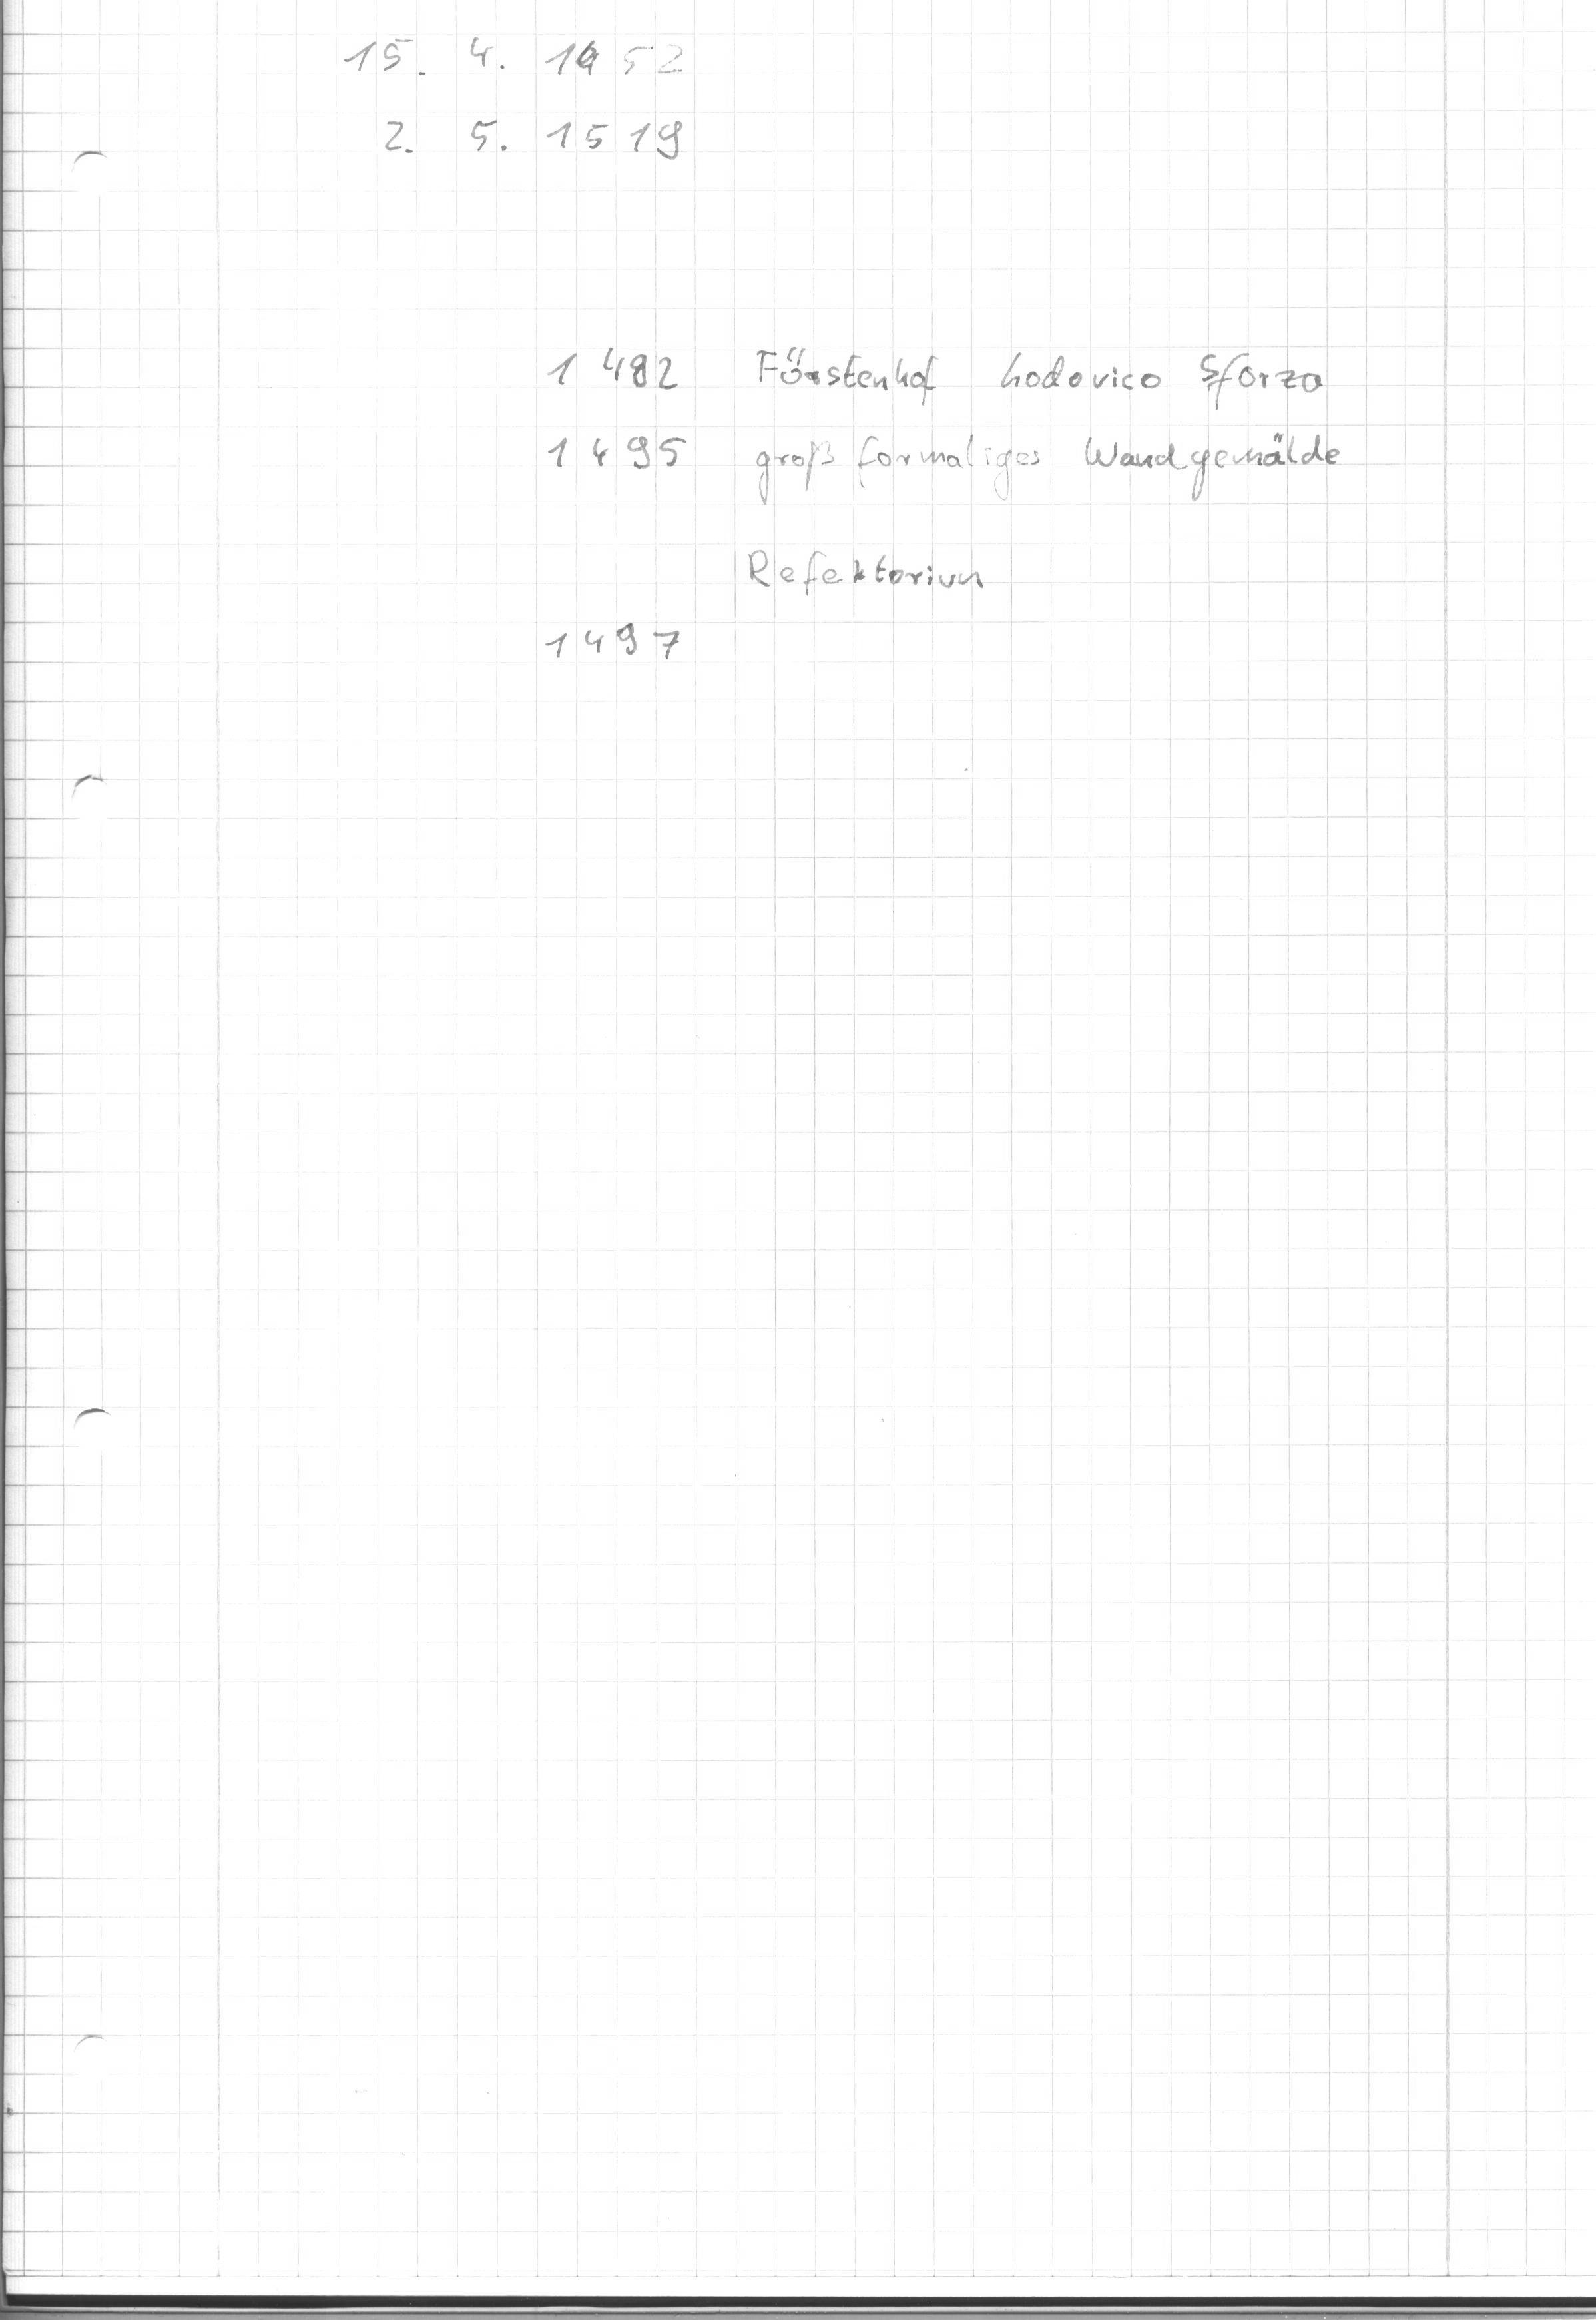 15. 4. 1452
2. 5. 1519
1482 Förstenhof Lodovico Sforza
1495 großformaliges Wandgemälde
Refektorium
1497